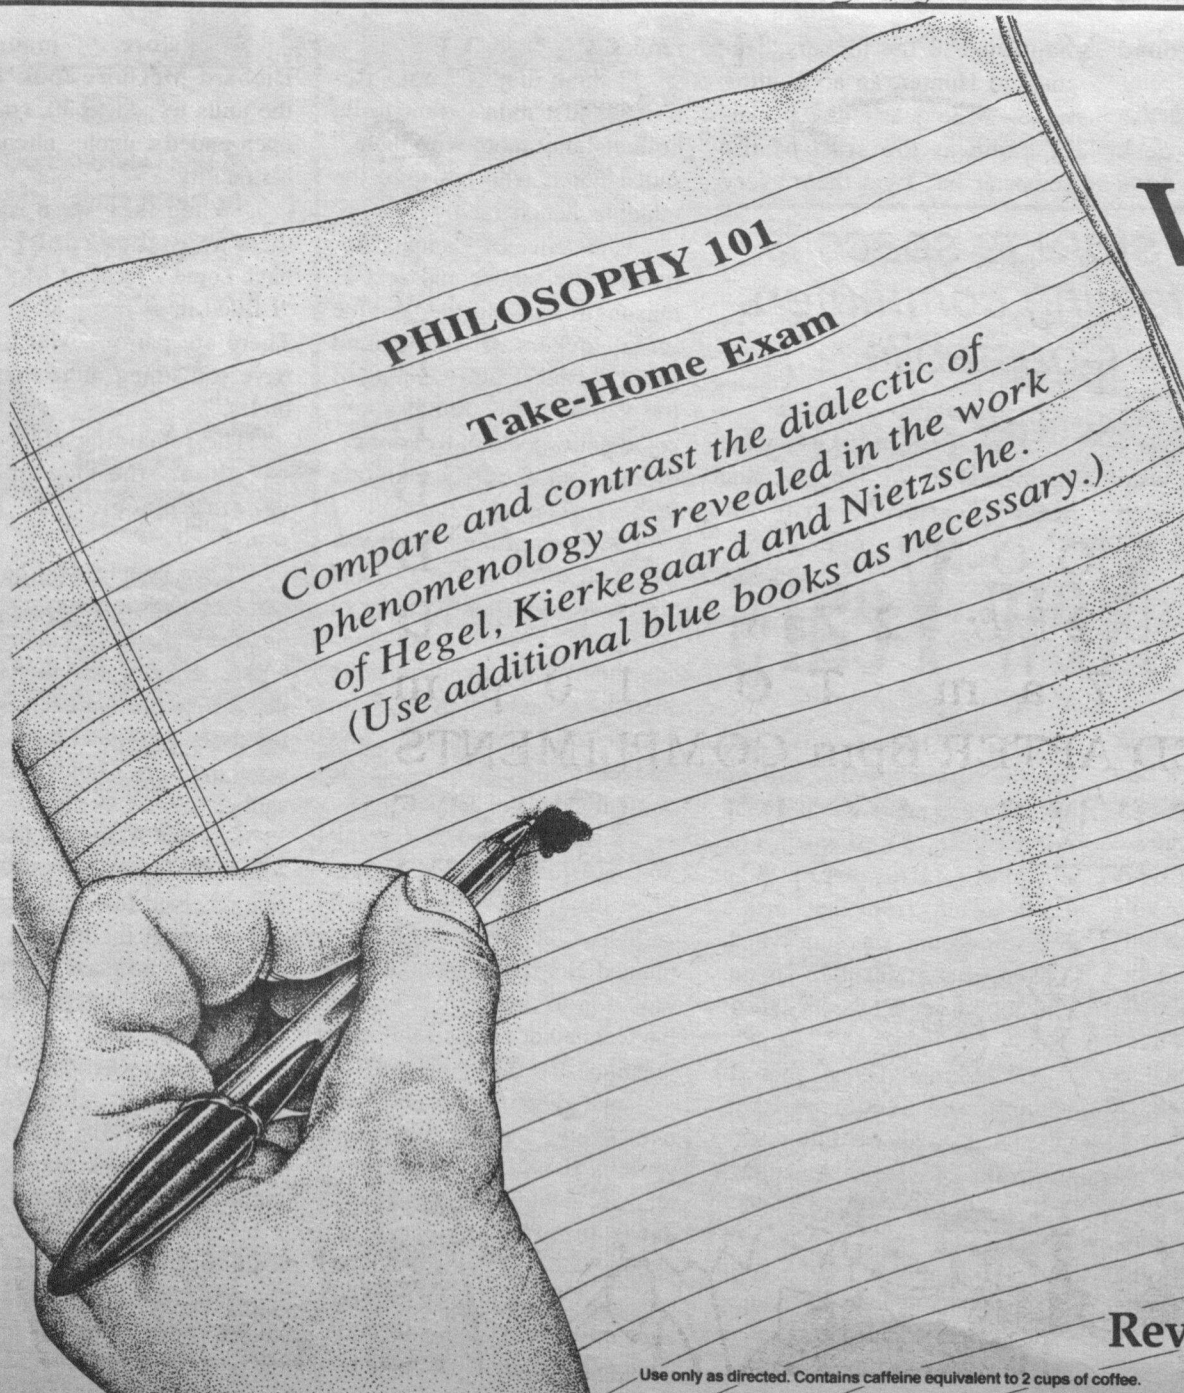 PHILOSOPHY 101
Take-Home Exam
Compare and contrast the dialectic of
phenomenology as revealed in the work
of Hegel, Kierkegaard and Nietzsche.
(Use additional blue books as necessary.)
Rev
Use only as directed. Contains caffeine equivalent to 2 cups of coffee.